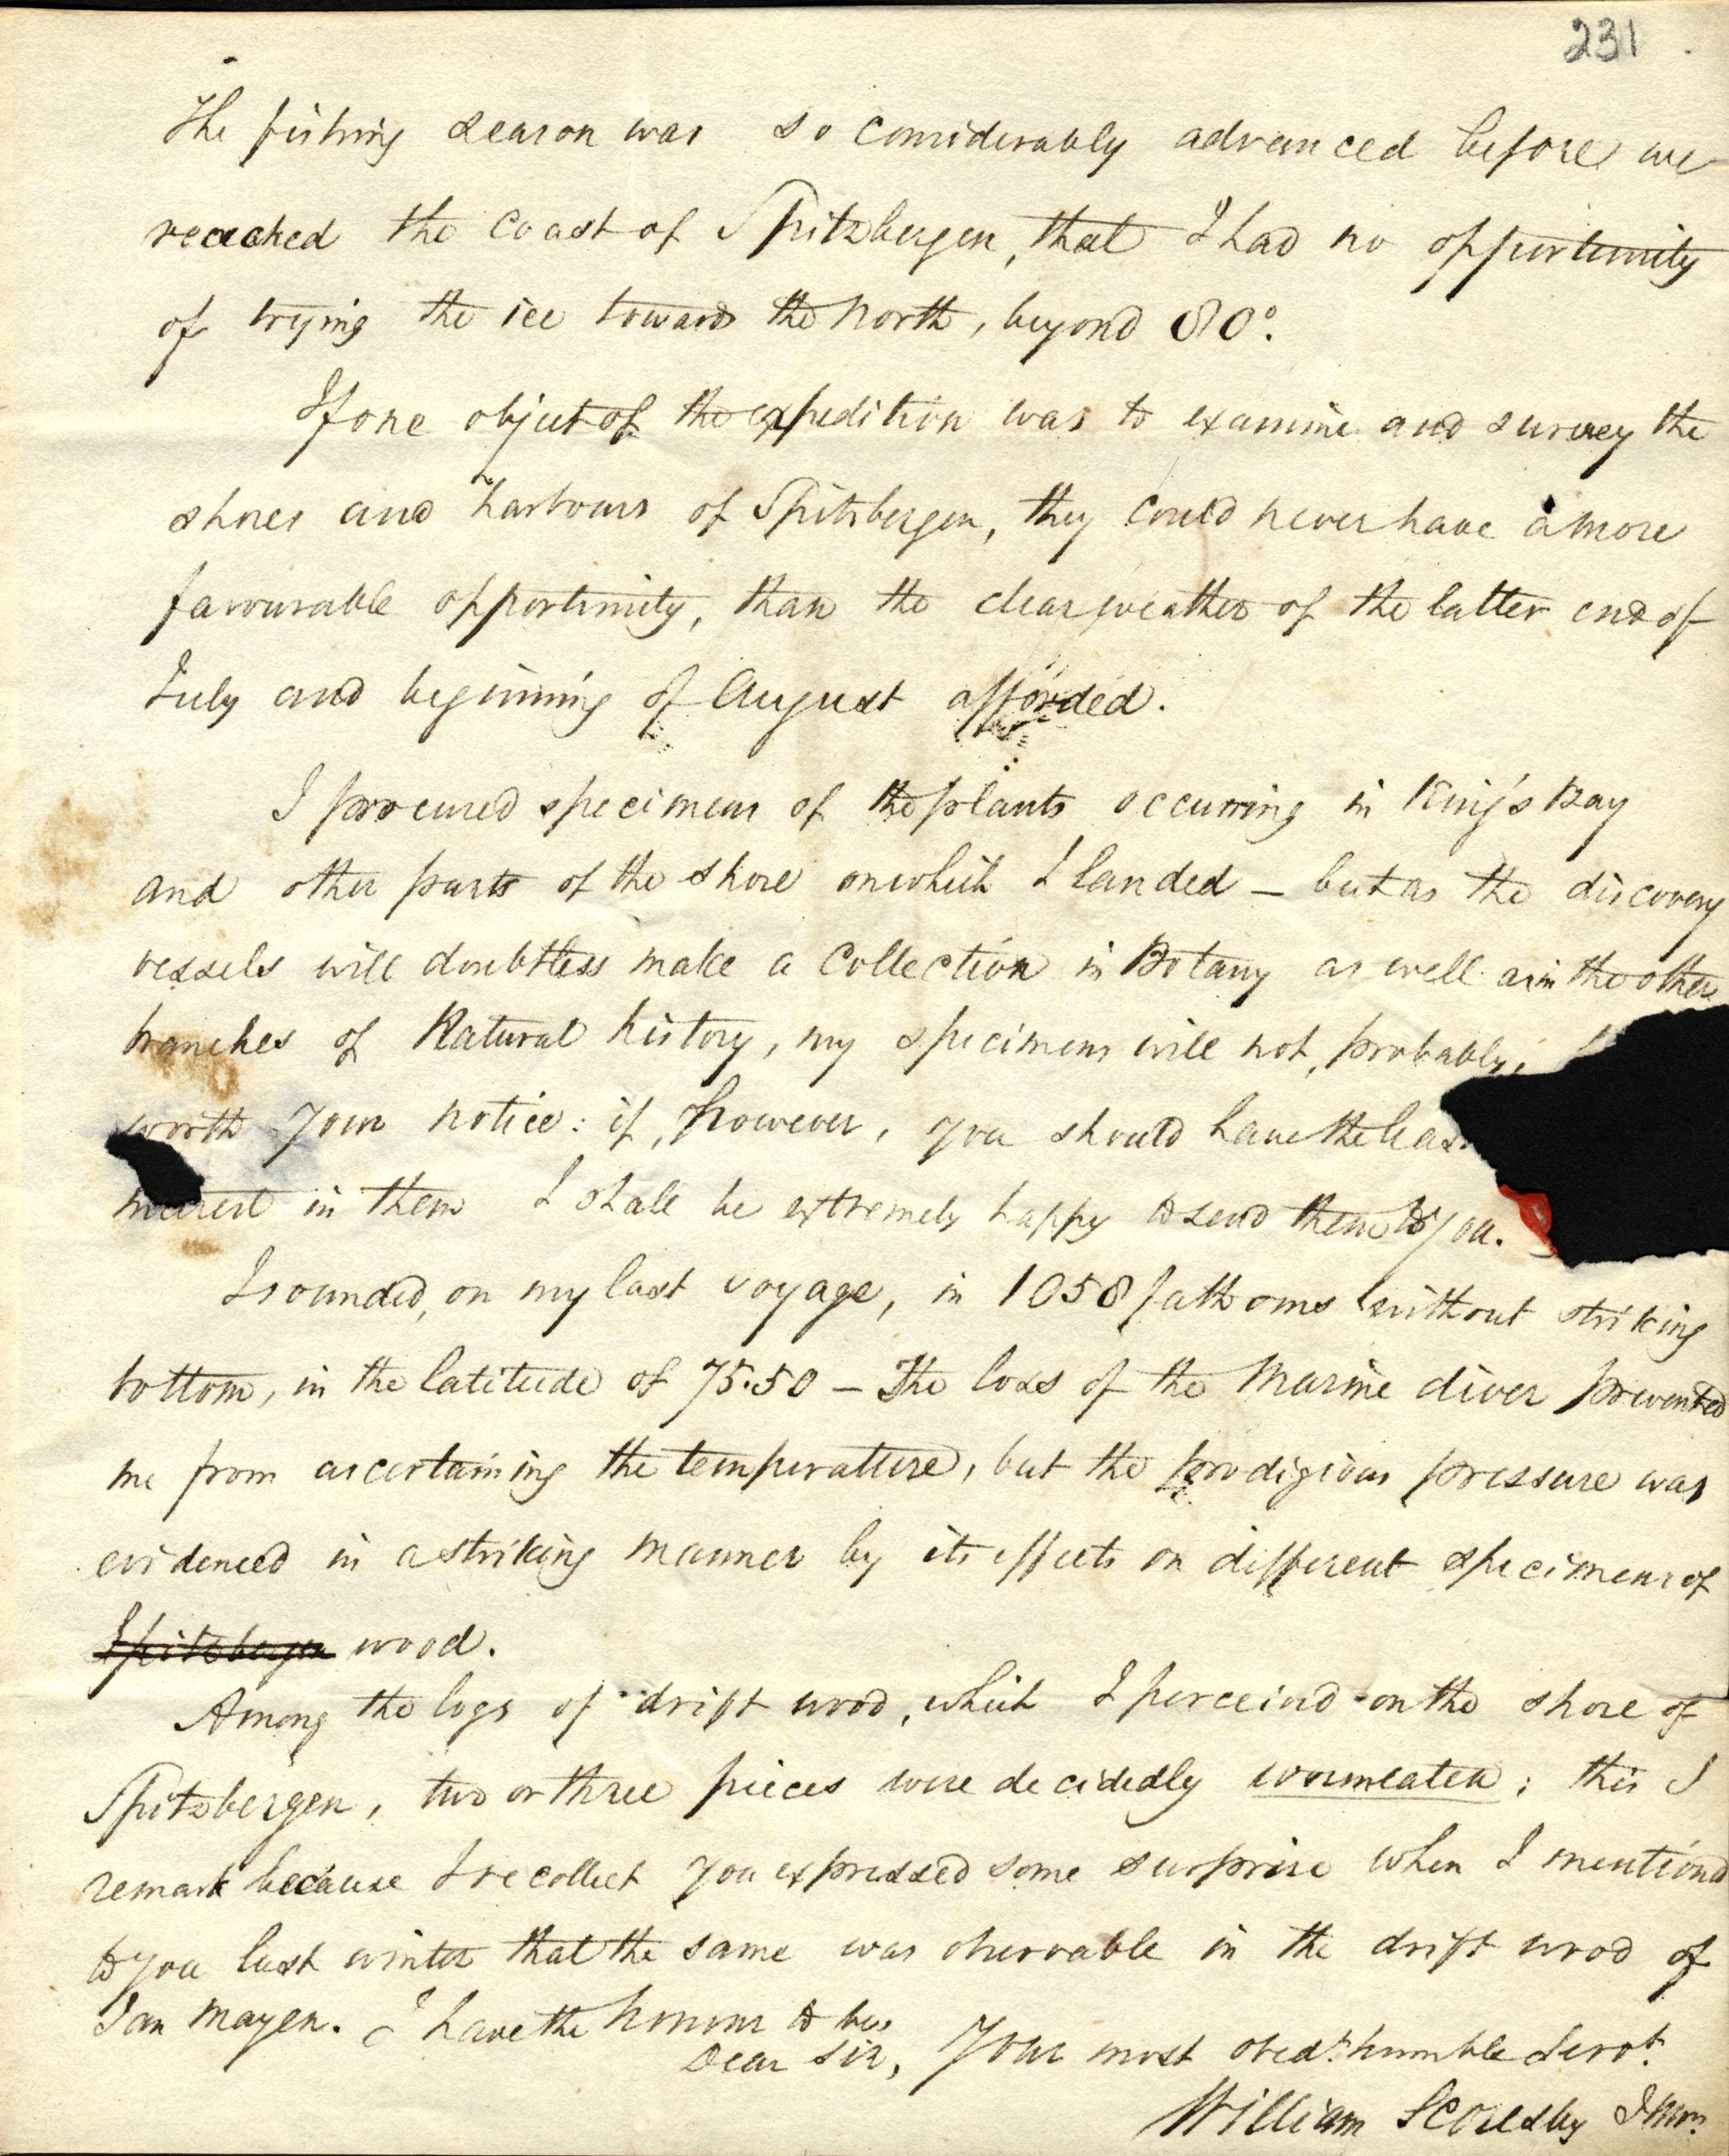 231
The fishing season was so considerably advanced before we
reached the Coast of Spitzbergen, that I had no opportunity
of trying the ice towards the North, beyond 80°.
If one object of the expedition was to examine and survey the
shores and harbours of Spitzbergen, they could never have a more
favourable opportunity, than the clear weather of the latter end of
July and beginning of August afforded.
I procured specimens of the plants occurring in King's Bay
and other parts of the shore on which I landed – but as the discovery
vessels will doubtless make a Collection in Botany as well as in the other
branches of Natural history, my specimens will not, probably,
worth your notice: if, however, you should have the leas
interest in them I shall be extremely happy to send them to you.
I sounded, on my last voyage, in 1058 fathoms without striking
bottom, in the latitude of 75.50 – The loss of the Marine diver prevented
me from ascertaining the temperature, but the prodigious pressure was
evidenced in a striking manner by its effects on different specimens of
Spitzbergen wood.
Among the logs of drift wood, which I perceived on the shore of
Spitzbergen, two or three pieces were decidedly wormeaten; this I
remark because I recollect you expressed some surprise when I mentioned
to you last winter that the same was observable in the drift wood of
Jan Mayen. I have the honour to be,
Dear Sir, Your most obedt. humble Servt.
William Scoresby Junr.